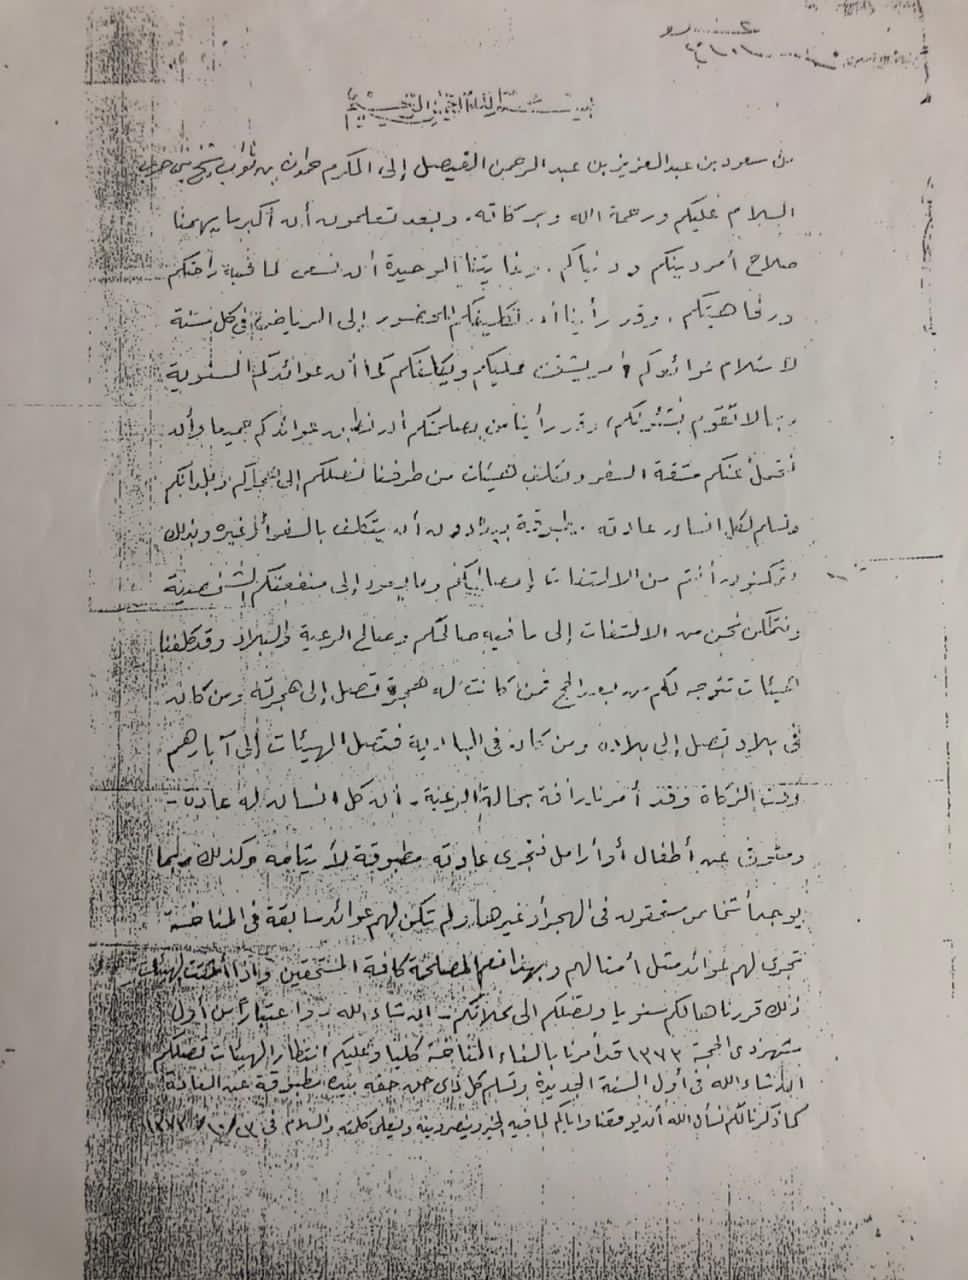 بسم الله الرحمن الرحيم
من سعود بن عبدالعزيز بن عبد الرحمن الفيصل إلى المكرم بن ثواب شيخ بني
السلام عليكم ورحمة الله وبركاته. وبعد تعلمون أن أكبر ما يهمنا
صلاح أمر دينكم ودنياكم. وغايتنا الوحيدة أن نسعى لما فيه راحتكم
ورفاهيتكم. وقد رأينا أن تكليفكم الحضور إلى الرياض في كل سنة
لاستلام عوائدكم أمر يشق عليكم ويكلفكم كما أن عوائدكم السنوية
ربما لا تقوم بشئونكم، وقد رأينا من مصلحتكم أن عوائدكم جميعا وأن
نتحمل عنكم مشقة السفر ونكلف هيئات من طرفنا تصلكم إلى وبلدانكم
وتسلم لكل انسان عادته مطبوقة بيده دون أن يتكلف بالسفر أو غيره وبذلك
أنتم من الالتفات إلى وما يعود إلى منفعتكم الشخصية
ونتمكن نحن من الالتفات إلى ما فيه صالحكم وصالح الرعية والبلاد وقد كلفنا
هيئات تتوجه لكم من بعد الحج فمن كانت له هجرة تصل إلى هجرته ومن كان
في بلاد تصل إلى بلاده ومن كان في البادية فتصل الهيئات إلى آبارهم
وقت الزكاة وقد أمرنا رأفة بحالة الرعية، أن كل انسان له عادة -
ومتوفي عن أطفال أو أرامل تجرى عادته مطبوقة لأيتامه وكذلك
يوجد أشخاص مستحقون في الهجر أو غيرها ولم تكن لهم عوائد سابقة في المناخة
تجرى لهم عوائد مثل أمثالهم وبهذا المصلحة كافة المستحقين وإذا الهيئات
ذلك قررناها لكم سنويا وتصلكم الى محلاتكم - ان شاء الله - واعتباراً من أول
شهر ذي الحجة ١٣٧٣ قد أمرنا بالغاء المناخة كليا وعليكم انتظار الهيئات تصلكم
ان شاء الله في أول السنة الجديدة وتسلم كل ذي حق حقه بيده مطبوقة العادة
كما ذكرنا لكم نسأل الله أن يوفقنا واياكم لما فيه الخير وينصر دينه ويعلي كلمته والسلام في